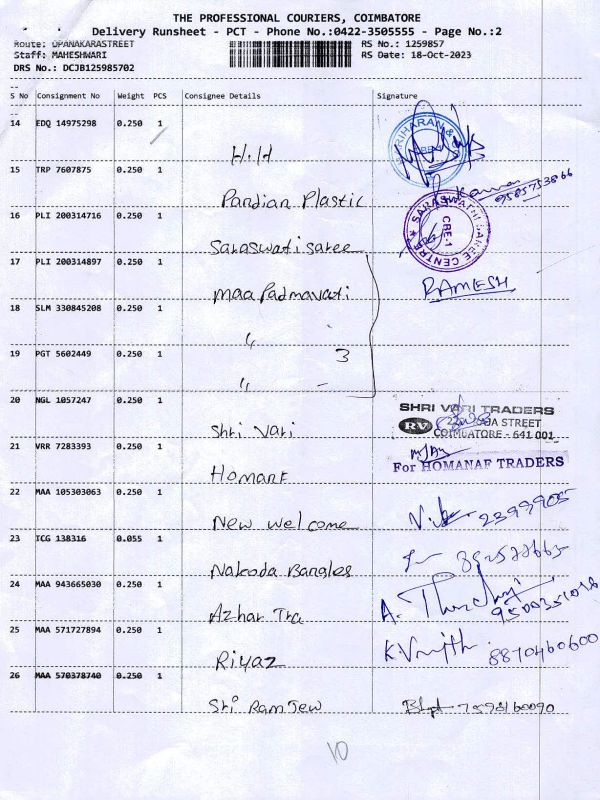 THE PROFESSIONAL COURIERS, COIMBATORE
Delivery Runsheet - PCT - Phone No.:0422-3505555 - Page No.:2
Route: OPANAKARASTREET RS No.: 1259857
Staff: MAHESHWARI RS Date: 18-Oct-2023
DRS No.: DCJB125985702
S No Consignment No Weight PCS Consignee Details Signature
14 EDQ 14975298 0.250 1
H.H
15 TRP 7607875 0.250 1
Pandian Plastic
9585753866
16 PLI 200314716 0.250 1
SARASWATHI SAREE CENTRE CBE-1
Saraswati saree
17 PLI 200314897 0.250 1
maa Padmavati
RAMESH
18 SLM 330845208 0.250 1
"
19 PGT 5602449 0.250 1
3
"
20 NGL 1057247 0.250 1
SHRI VARI TRADERS
RV STREET
COIMBATORE - 641 001
Shri Vari
21 VRR 7283393 0.250 1
For HOMANAF TRADERS
Homanf
22 MAA 105303063 0.250 1
New welcome
2399905
23 ICG 138316 0.055 1
Nakoda Bangles
24 MAA 943665030 0.250 1
Azhar Tra
25 MAA 571727894 0.250 1
Riyaz
8870460600
26 MAA 570378740 0.250 1
Sri Ram Jew
10